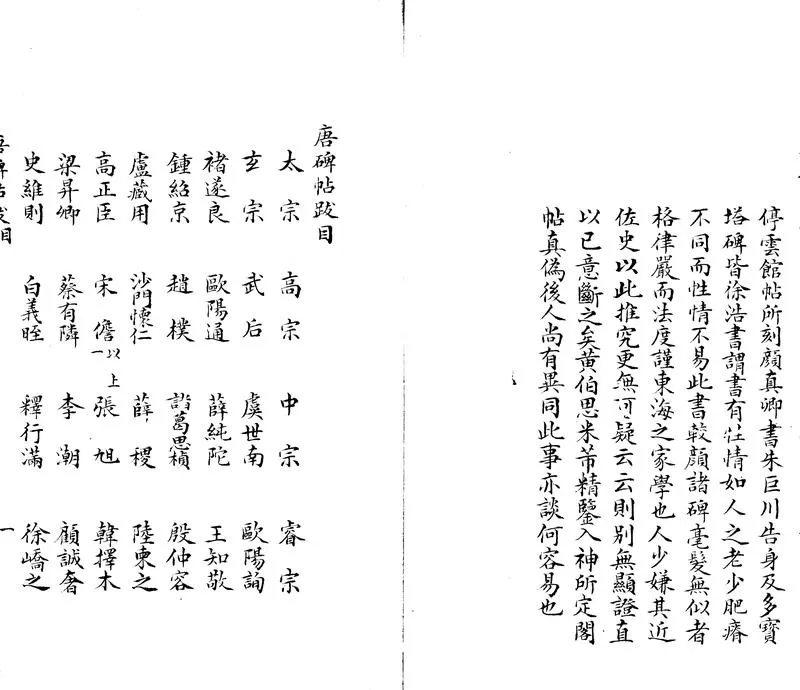 停雲館帖所刻顔真卿書朱巨川告身及多寶
塔碑皆徐浩書謂書有性情如人之老少肥瘠
不同而性情不易此書較顔諸碑毫髮無似者
格律嚴而法度謹東海之家學也人少嫌其近
佐史以此推究更無可疑云云則别無顯證直
以已意斷之矣黄伯思米芾精鑒入神所定閣
帖真偽後人尚有異同此事亦談何容易也
唐碑帖跋目
太宗 高宗 中宗 睿宗
玄宗 武后 虞世南 歐陽詢
褚遂良 歐陽通 薛純陀 王知敬
鍾紹京 趙樸 諸葛思禎 殷仲容
盧藏用 沙門懷仁 薛稷 陸柬之
高正臣 宋儋 以上一 張旭 韓擇木
梁昇卿 蔡有隣 李潮 顧誠奢
史維則 白羲晊 釋行滿 徐嶠之
唐碑帖跋目 一